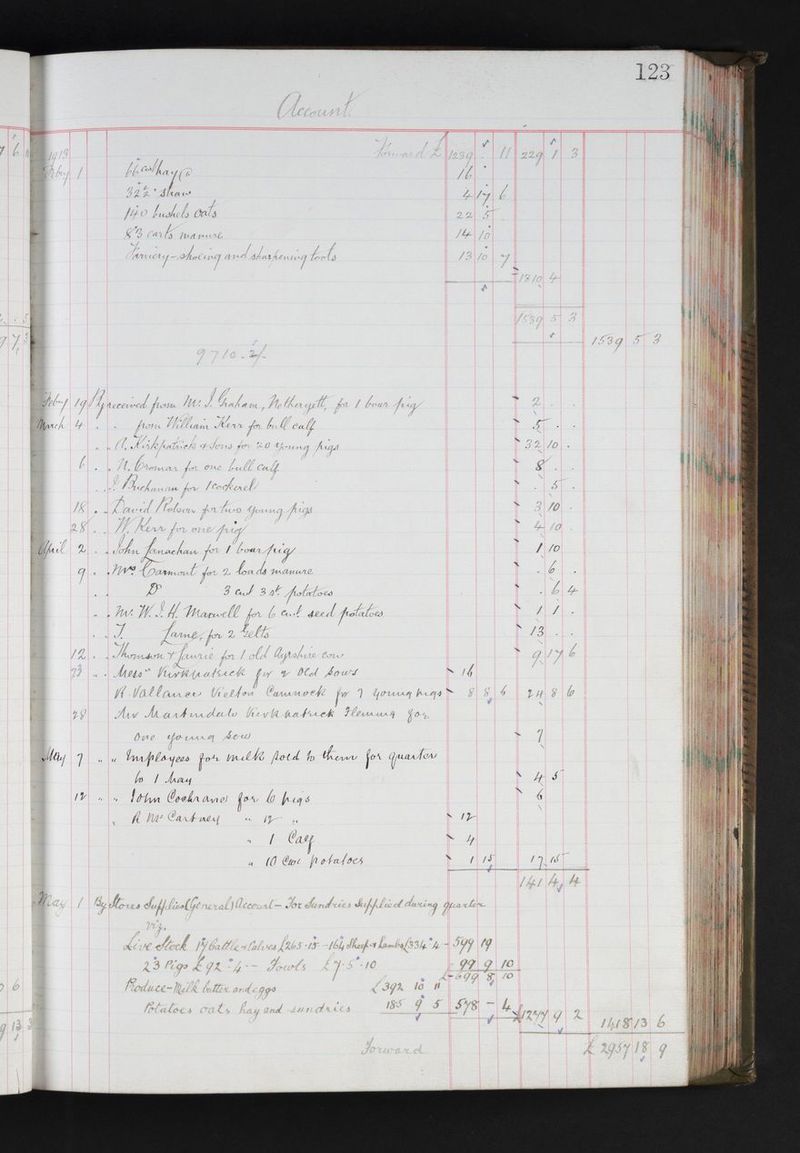 123
Account
1913 Forward £ 1239 . 11 229 1 3
Feby 1 66 cwt hay @ 16
322 " straw 4 17 6
140 bushels oats 22 5
83 carts manure 14 10
Farriery - shoeing and sharpening tools 13 10 7
1310 4
1539 5 3
1539 5 3
9710
Feby 19 By received from Mr. J. Graham, for 1 boar pig 2 . .
March 4 " " from William Kerr for bull calf 5 . .
" " A. Kirkpatrick & Sons for 20 young pigs 32 10 .
6 " " N. Cromar for one bull calf 8 . .
" J. Buchanan for 1 cockerel . 5 .
18 " " David for two young pigs 3 10
28 " " W. Kerr for one pig 4 10
April 2 " " John Lanachan for 1 boar pig 1 10
9 " " Mrs for 2 loads manure . 6 .
" " Do 3 cwt 3 st potatoes . 6 4
" " Mr. W. J. H. Maxwell for 6 cwt seed potatoes 1 1 .
" " J. for 2 Gelts 13 . .
12 " " Thomson & Laurie for 1 old Ayrshire cow 9 17 6
23 " " Messrs Kirkpatrick for 2 Old Sows 16
R. Vallance for 7 young pigs 8 8 6 24 8 6
28 Mr Martindale Kirkpatrick Fleming for
One young Sow 7
May 7 " " Employees for milk sold to them for quarter
to 1 May 4 5
12 " " John Cochrane for 6 pigs 6
" R McCartney " 12 " 12
" 1 Calf 4
" 10 Cwt potatoes 1 15 17 15
141 4 4
May 1 By Stores Supplied (General) Account - For Sundries Supplied during quarter
viz.
Live Stock 17 Cattle & Calves £265.15 - 164 Sheep & Lambs £334 " 4 - 599 19
23 Pigs £92 " 4 - - Fowls £7.5.10 99 9 10
£ 699 8 10
Produce - Milk butter and eggs £392 10 11
Potatoes oats hay and sundries 185 9 5 578 - 4 £1277 9 2 1418 13 6
Forward £ 2957 18 9